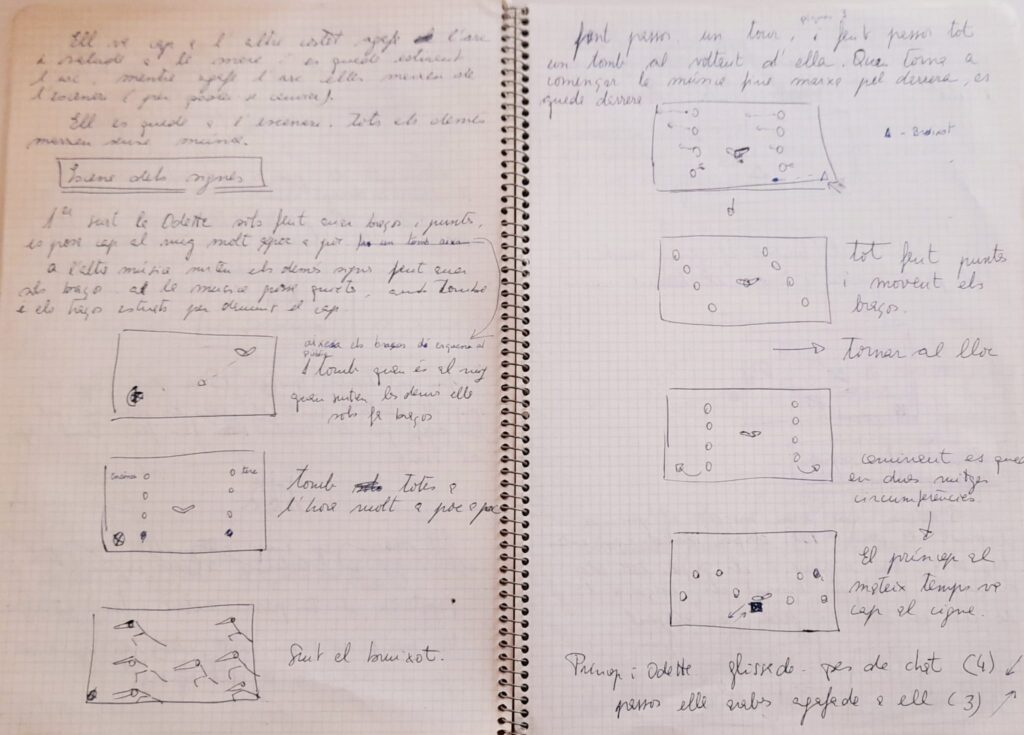 Ell va cap a l'altre costat agafa l'arc
i es queda estirant
l'arc mentre agafa l'arc elles marxen de
l'escenari
Ell es queda a l'escenari. Tots els demés
marxen sense música.
Escena dels signes
1er surt la Odette sols fent anar braços i puntes,
es posa cap al mig molt apoc a poc
a l'altre música surten els demés signes fent anar
sols braços al la musica posse quiets, amb tombe
i els braços estirats per demunt el cap
aixeca els braços de esquena al
públic
1 tomb quan és al mig
quan surten les demés ella
sols fa braços
tomb totes a
l'hora molt a poc a poc
Surt el bruixot.
fent passos un tour, i fent passos tot
un tomb al voltant d'ella. Quan torna a
començar la música marxa pel derrera, es
queda derrera
Δ - Bruixot
tot fent puntes
i movent els
braços.
→ Tornar al lloc
caminant es queden
en dues mitges
circumferències
El príncep al
mateix temps va
cap al cigne.
Príncep i Odette glissade - pas de chat (4) ↙
passos ella agafada a ell (3) ↗